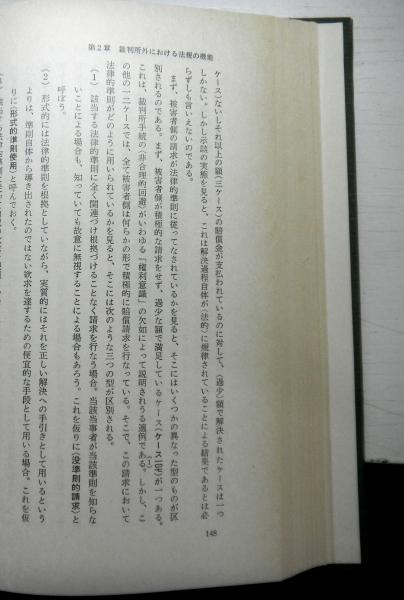 148
第2章 裁判所外における法規の機能
ケース)ないしそれ以上の額(三ケース)の賠償金が支払われているのに対して、(過少)額で解決されたケースは一つ
しかない。しかし示談の実態を見ると、これは解決過程自体が〈法的〉に規律されていることによる結果であるとは必
らずしも言えないのである。
まず、被害者側の請求が法律的準則に従ってなされているかを見ると、そこにはいくつかの異なった型のものが区
別されるのである。まず、被害者側が積極的な請求をせず、過少な額で満足しているケース(ケース
が一つある。
これは、裁判所手続の〈非合理的回避〉がいわゆる「権利意識」の欠如によって説明されうる適例である。(1)しかし、こ
の他の一二ケースでは、全て被害者側は何らかの形で積極的に賠償請求を行なっている。そこで、この請求において
法律的準則がどのように用いられているかを見ると、そこには次のような三つの型が区別される。
(1) 該当する法律的準則に全く関連づけ根拠づけることなく請求を行なう場合。当該当事者が当該準則を知らな
いことによる場合も、知っていても故意に無視することによる場合もあろう。これを仮りに〈没準則的請求〉と
呼ぼう。
(2) 形式的には法律的準則を根拠としていながら、実質的にはそれを正しい解決への手引きとして用いるという
よりは、準則自体から導き出されたのではない欲求を達するための便宜的な手段として用いる場合。これを仮
りに〈形式的準則使用〉と呼んでおく。